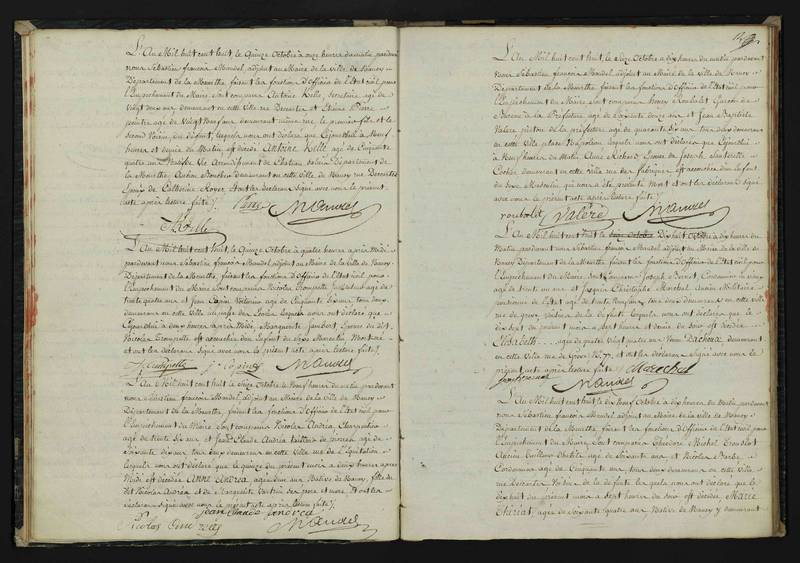 L'An Mil huit cent huit le Quinze Octobre à onze heures du matin pardevant
nous Sebastien françois Mandel, adjoint au Maire de la ville de Nancy
Département de la Meurthe, faisant les fonctions d'Officier de l'Etat civil pour
l'Empechement du Maire sont comparus Antoine Kelle, Secretaire agé de
Vingt deux ans, demeurant en cette Ville rue Descartes et Etienne Pierre
peintre agé de Vingt neuf ans demeurant même rue, le premier fils et le
Second Voisin du défunt, lesquels nous ont déclaré que Cejourd'hui à neuf
heures et demie du Matin est décédé Antoine Kelle agé de Cinquante
quatre ans Natif de Vic Arrondissement de Chateau salins Département de
la Meurthe, demeurant en cette Ville de Nancy rue Descartes
Epoux de Catherine Royer, Et ont les déclarans Signé avec nous le présent
acte après lecture faite /.
Mandel
A Kelle
L'An Mil huit cent huit le Quinze Octobre à quatre heures après Midi
pardevant nous Sebastien françois Mandel adjoint au Maire de la ville de Nancy
Département de la Meurthe, faisant les fonctions d'Officier de l'Etat civil pour
l'Empechement du Maire sont comparus Nicolas Trompette agé de
trente quatre ans et Jean Capin Voiturier agé de Cinquante Six ans, tous deux
demeurans en cette Ville lesquels nous ont déclaré que
Cejourd'hui à deux heures après Midi, Marguerite Jambert, Epouse du dit
Nicolas Trompette est accouchée d'un Enfant du Sexe Masculin Mort né
et ont les déclarans Signé avec nous le présent acte après lecture faite /.
Trompette J. Capin Mandel
L'An Mil huit cent huit le Seize Octobre à Neuf heures du matin pardevant
nous Sebastien françois Mandel, adjoint au Maire de la ville de Nancy
Département de la Meurthe, faisant les fonctions d'Officier de l'Etat civil pour
l'Empechement du Maire Sont comparus Nicolas Andréa Charpentier
agé de trente Six ans et Jean Claude Andréa tailleur de pierres, agé de
Soixante deux ans, tous deux demeurans en cette Ville rue de l'Equitation
lesquels nous ont déclaré que le quinze du présent mois à deux heures après
Midi est décédée Anne Andréa, agée de deux ans Native de Nancy, fille du
dit Nicolas Andréa et de Marguerite ses père et mere Et ont les
déclarans Signé avec nous le présent acte après lecture faite /.
jean Claude Andrea
Nicolas Mandel
L'An Mil huit cent huit, le Seize Octobre à dix heures du matin pardevant
nous Sebastien françois Mandel adjoint au Maire de la Ville de Nancy
Département de la Meurthe, faisant les fonctions d'Officier de l'Etat civil pour
l'Empechement du Maire sont comparus Garçon de
Bureau à la Préfecture agé de Soixante ans et Jean Baptiste
Valere piéton de la préfecture agé de quarante Six ans tous deux demeurans
en cette Ville place Napoléon lesquels nous ont déclaré que Cejourd'hui
à Neuf heures du Matin Anne Richard Epouse de Joseph
Cocher demeurant en cette Ville rue des fabriques est accouchée d'un Enfant
du Sexe Masculin qui nous a été présenté Mort et ont les déclarans Signé
avec nous le présent acte après lecture faite /.
Valere Mandel
L'An Mil huit cent huit le Dix huit Octobre à dix heures du
Matin pardevant nous Sebastien françois Mandel adjoint au Maire de la ville de
Nancy Département de la Meurthe, faisant les fonctions d'Officier de l'Etat civil pour
l'Empechement du Maire. Sont Comparus Joseph Cordonnier
agé de trente ans et Joseph Christophe Marchal Ancien Militaire
pensionné de l'Etat agé de trente Neuf ans, tous deux demeurans en cette Ville
rue de Grève, Voisins de la défunte lesquels nous ont déclaré que le
dix Sept du présent mois à Sept heures et demie du Soir est décédée
Elisabeth agée de quatre Vingt quatre ans Veuve Dachoux demeurant
en cette Ville rue de Grève No. 77. et ont les déclarans Signé avec nous le
présent acte après lecture faite /. Marechal
Mandel
L'An Mil huit cent huit le Dix Neuf Octobre à dix heures du Matin, pardevant
nous Sebastien françois Mandel adjoint au Maire de la ville de Nancy
Département de la Meurthe, faisant les fonctions d'Officier de l'Etat civil pour
l'Empechement du Maire, Sont comparus Théodore Michel
Ancien agé de Soixante ans et Nicolas Barbe
Cordonnier agé de Cinquante ans, tous deux demeurans en cette Ville
rue Descartes Voisins de la défunte lesquels nous ont déclaré que le
dix huit du présent mois à Sept heures du Soir est décédée, Marie
Thiriat, agée de Soixante quatre ans Native de Nancy y demeurant